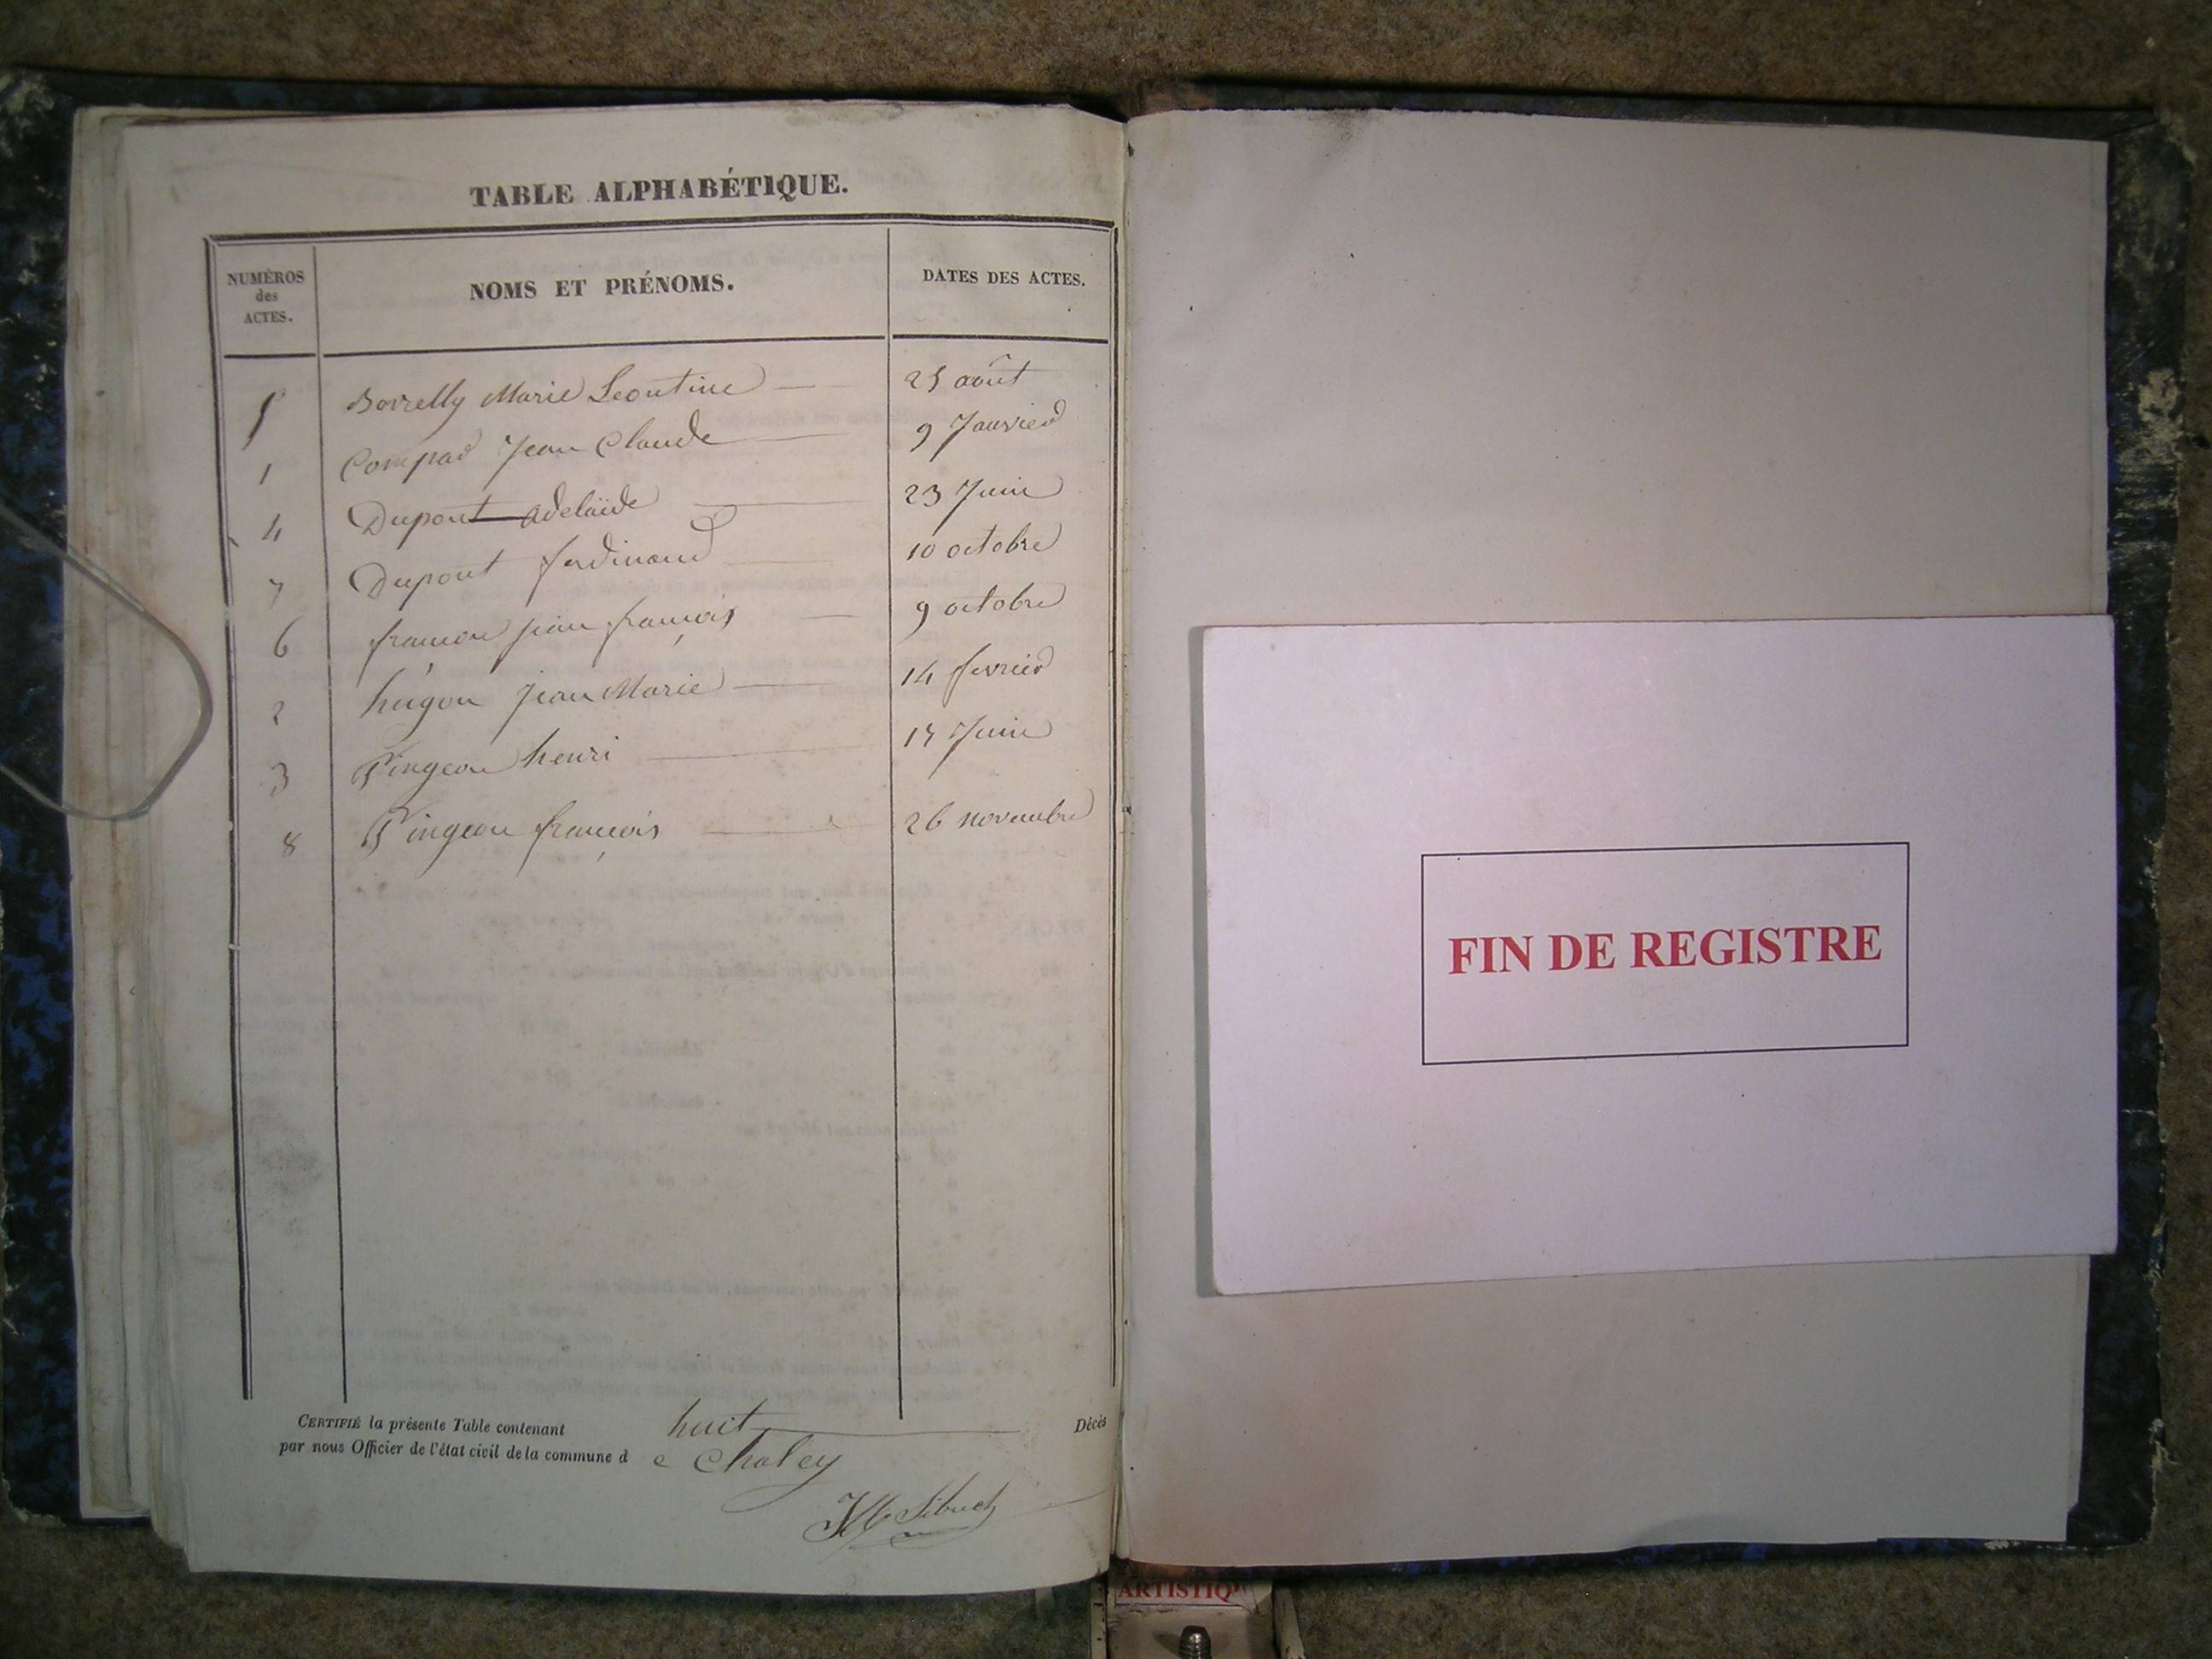 TABLE ALPHABÉTIQUE.
NUMÉROS des ACTES. NOMS ET PRÉNOMS. DATES DES ACTES.
5 Borrelly Marie Leontine 25 août
1 Compad Jean Claude 9 Janvier
4 Dupont Adelaïde 23 Juin
7 Dupont ferdinand 10 octobre
6 françon jean françois 9 octobre
2 hugon Jean Marie 14 fevrier
3 Pingeon henri 15 Juin
8 Pingeon françois 26 novembre
CERTIFIÉ la présente Table contenant huit Décès
par nous Officier de l'état civil de la commune d e Chaley
FIN DE REGISTRE
ARTISTIQ